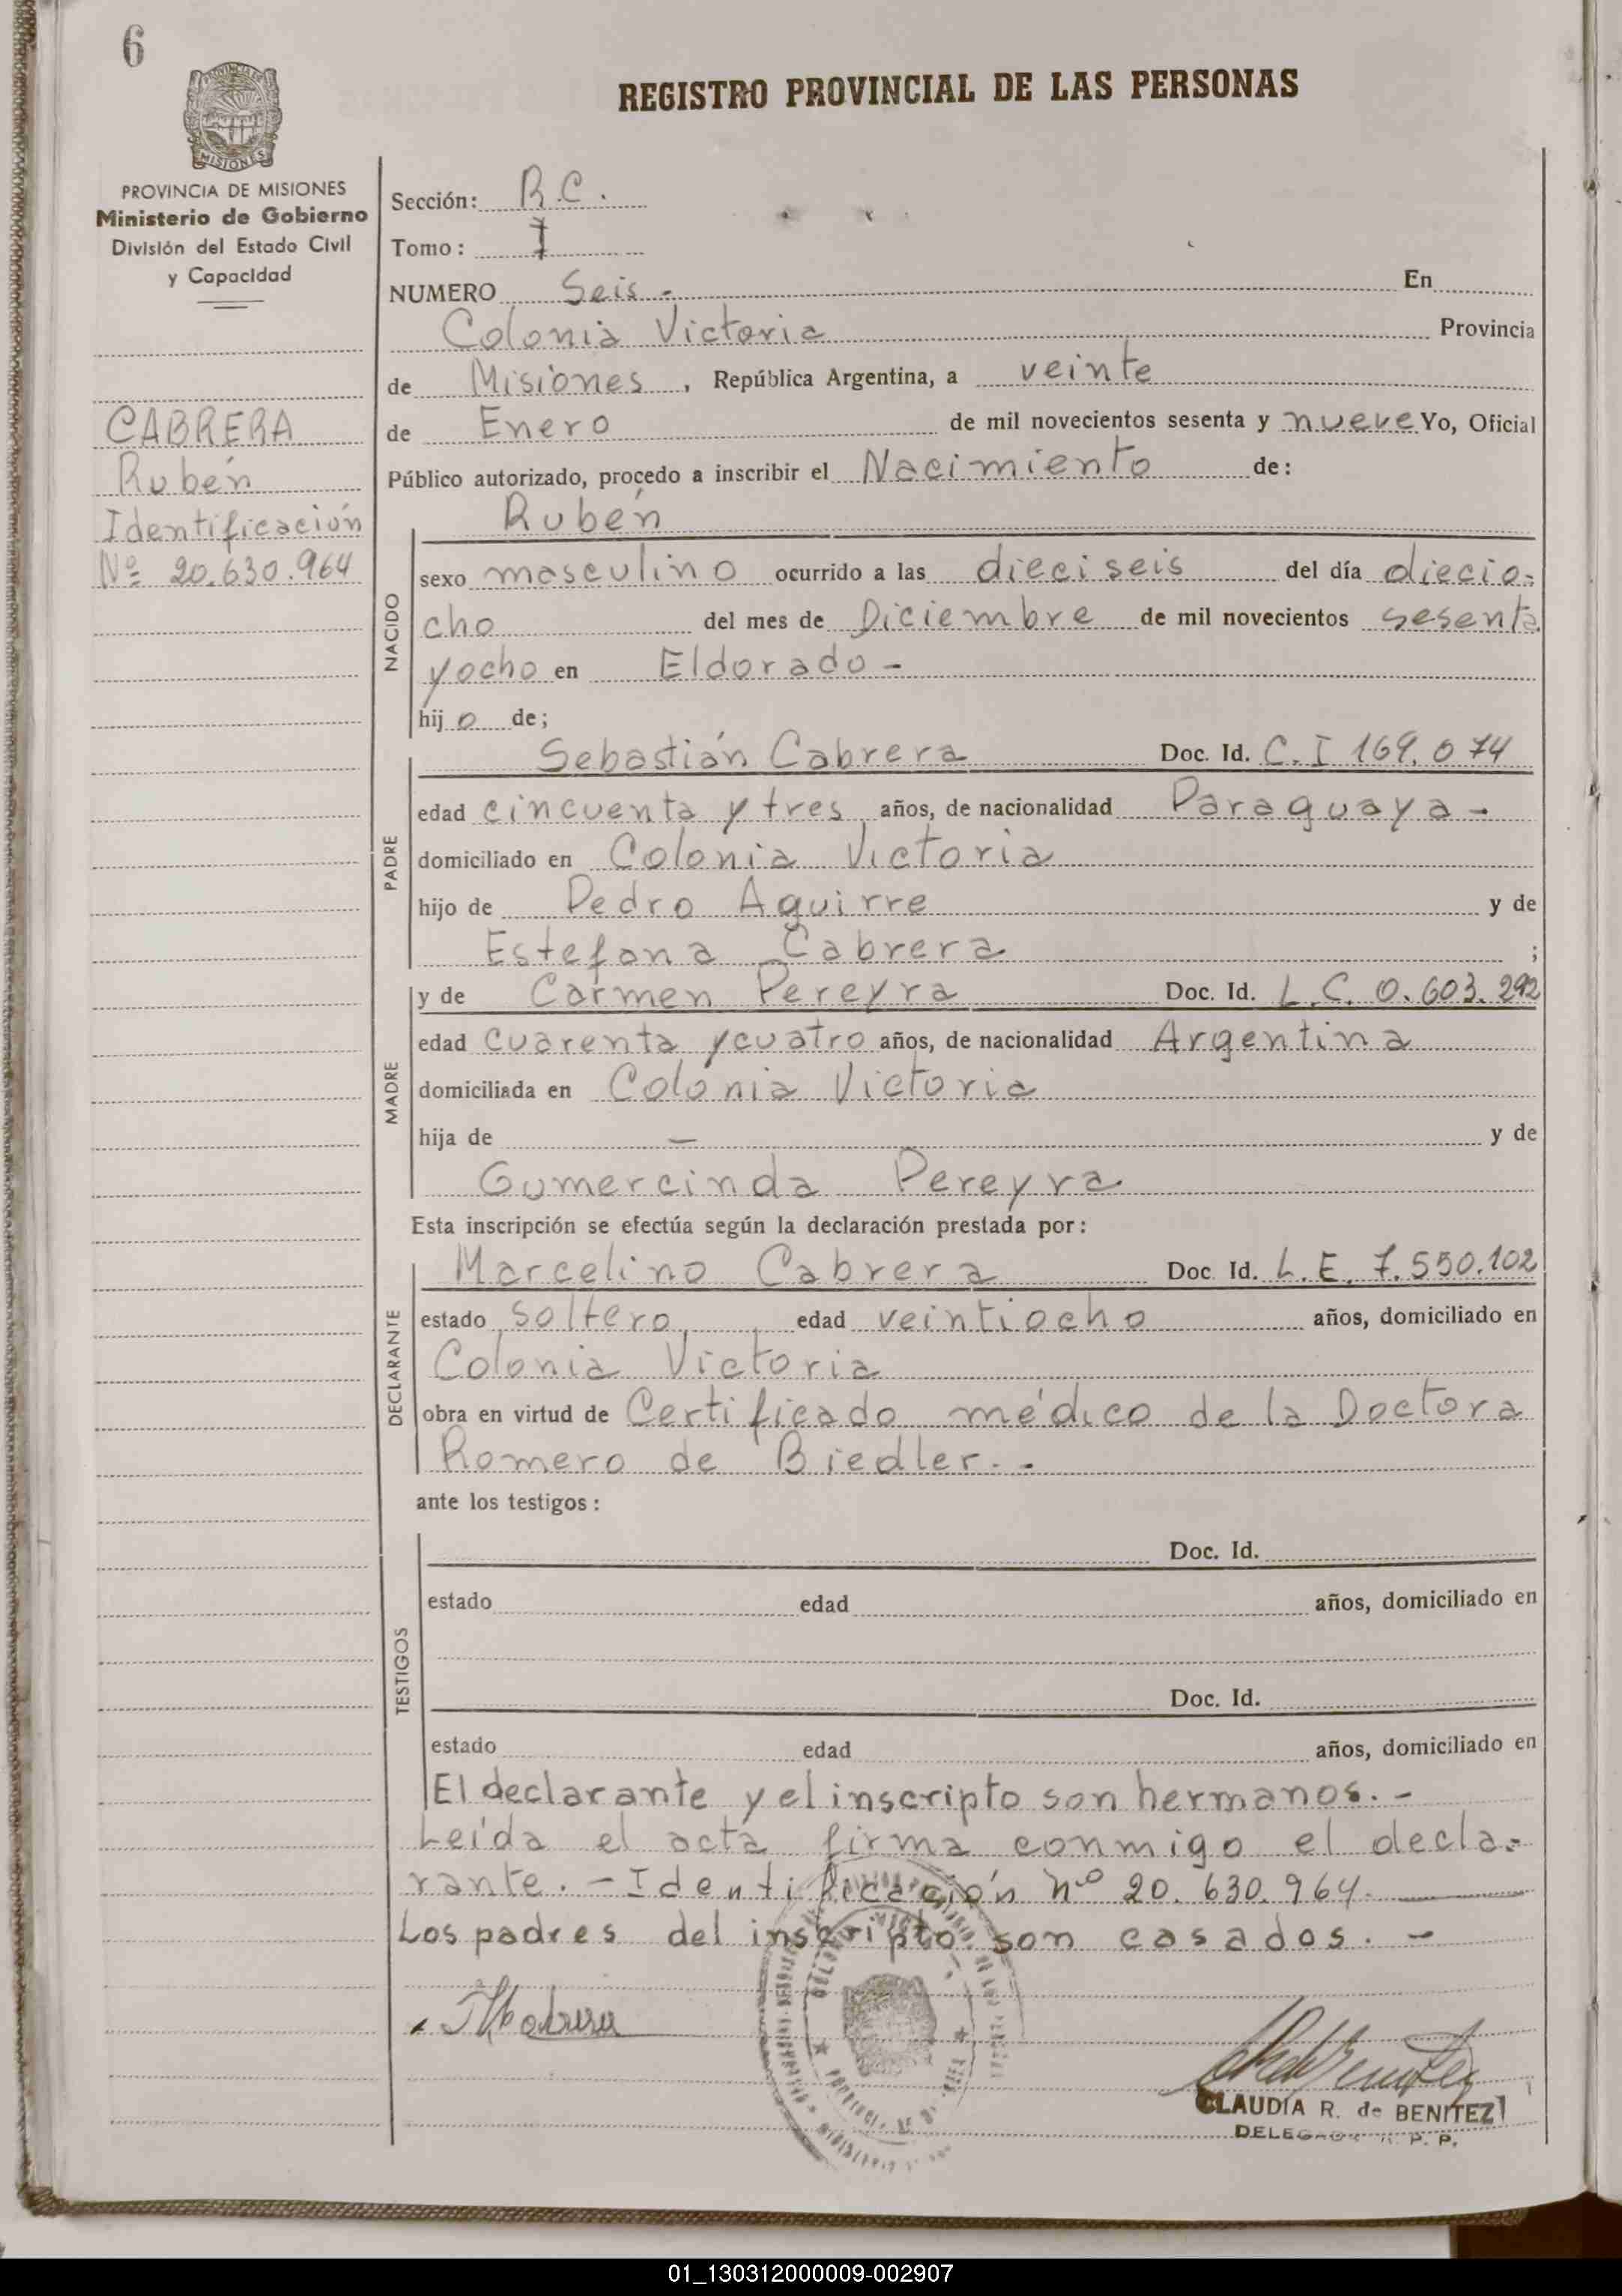 6
PROVINCIA DE MISIONES
Ministerio de Gobierno
División del Estado Civil
y Capacidad
CABRERA
Rubén
Identificación
Nº 20.630.964
REGISTRO PROVINCIAL DE LAS PERSONAS
Sección: R.C.
Tomo: I
NUMERO Seis - En
Colonia Victoria Provincia
de Misiones, República Argentina, a veinte
de Enero de mil novecientos sesenta y nueve Yo, Oficial
Público autorizado, procedo a inscribir el Nacimiento de:
Rubén
NACIDO
sexo masculino ocurrido a las dieciseis del día diecio-
cho del mes de Diciembre de mil novecientos sesenta
y ocho en Eldorado -
hijo de;
PADRE
Sebastián Cabrera Doc. Id. C.I 169.074
edad cincuenta y tres años, de nacionalidad Paraguaya -
domiciliado en Colonia Victoria
hijo de Pedro Aguirre y de
Estefana Cabrera ;
MADRE
y de Carmen Pereyra Doc. Id. L.C. 0.603.292
edad cuarenta y cuatro años, de nacionalidad Argentina
domiciliada en Colonia Victoria
hija de — y de
Gumercinda Pereyra
Esta inscripción se efectúa según la declaración prestada por:
DECLARANTE
Marcelino Cabrera Doc. Id. L.E. 7.550.102
estado soltero, edad veintiocho años, domiciliado en
Colonia Victoria
obra en virtud de Certificado médico de la Doctora
Romero de Biedler. -
ante los testigos:
TESTIGOS
Doc. Id.
estado edad años, domiciliado en
Doc. Id.
estado edad años, domiciliado en
El declarante y el inscripto son hermanos. -
Leída el acta firma conmigo el decla-
rante. - Identificación nº 20.630.964.
Los padres del inscripto son casados. -
CLAUDIA R. de BENITEZ
01_130312000009-002907